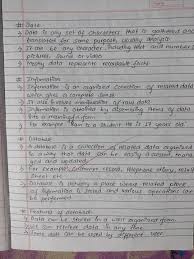 # Data
> Data is any set of characters that is gathered and
translated for some purpose, usually analysis.
> It can be any character, including text and numbers,
pictures, sound or video.
> Mostly data represents recordable facts.
# Information
> Information is an organised collection of related data
which gives a
> It also involves manipulation of raw data.
> Information is obtained by assembling items of data
into a meaningful form.
> For example: "Ram is a student. He is 17 years old."
# Database
> A database is a collection of related data organised
in a way that data can be easily accessed, managed
and updated.
> For example: Customer record, telephone diary, salary
Sheet etc.
> Database is actually a place where related piece
of information is stored and various operations can
be performed.
# Features of database:
> Data can be stored in a well organised form.
> We can retrieve data in any time.
> Same data can be used by different user.